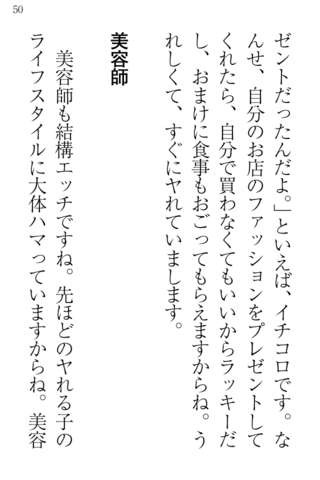 50
ゼントだったんだよ。」といえば、イチコロです。な
んせ、自分のお店のファッションをプレゼントして
くれたら、自分で買わなくてもいいからラッキーだ
し、おまけに食事もおごってもらえますからね。う
れしくて、すぐにヤれていまします。
美容師
美容師も結構エッチですね。先ほどのヤれる子の
ライフスタイルに大体ハマっていますからね。美容